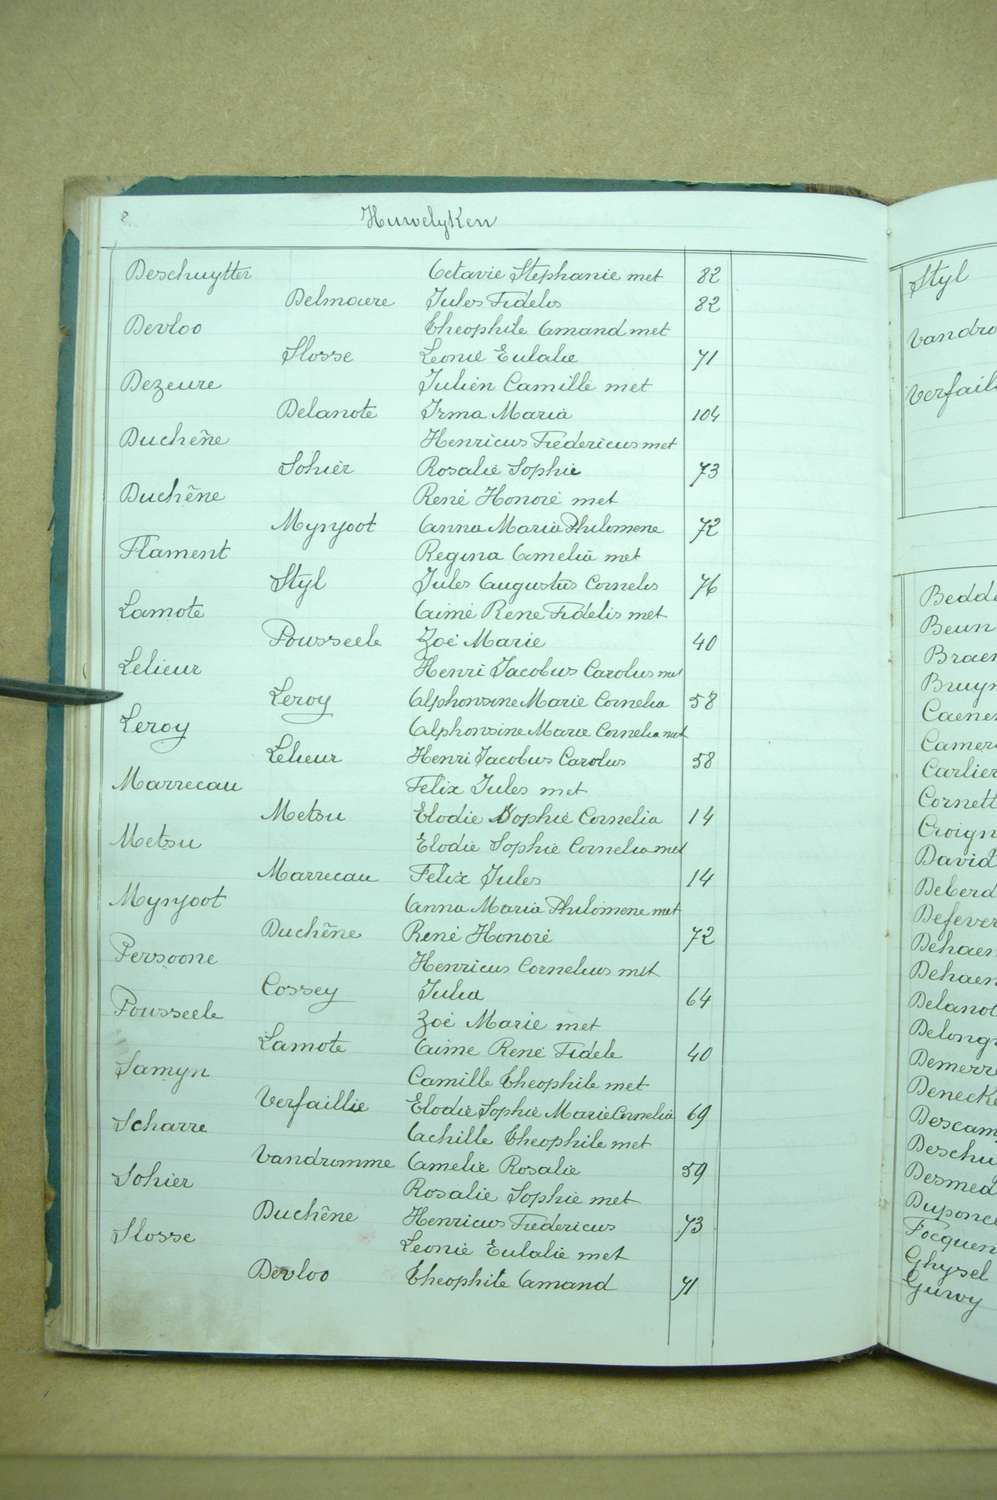 8.
Huwelyken
Deschuytter Octavie Stephanie met 82
Delmaere Jules Fidelis 82
Devloo Theophile Amand met
Slosse Leonie Eulalie 71
Dezeure Julien Camille met
Delanote Irma Maria 104
Duchêne Henricus Fredericus met
Sohier Rosalie Sophie 73
Duchêne René Honoré met
Mynjoot Anna Maria Philomene 72
Flament Regina Amelia met
Styl Jules Augustus Cornelis 76
Lamote Aimé René Fidelis met
Pousseele Zoé Marie 40
Lelieur Henri Jacobus Carolus met
Leroy Alphonsine Marie Cornelia 58
Leroy Alphonsine Marie Cornelia met
Lelieur Henri Jacobus Carolus 58
Marrecau Felix Jules met
Metsu Elodie Sophie Cornelia 14
Metsu Elodie Sophie Cornelia met
Marrecau Felix Jules 14
Mynjoot Anna Maria Philomene met
Duchêne René Honoré 72
Persoone Henricus Cornelius met
Cossey Julia 64
Pousseele Zoé Marie met
Lamote Aimé René Fidele 40
Samyn Camille Theophile met
Verfaillie Elodie Sophie Marie Cornelia 69
Scharre Achille Theophile met
Vandromme Amelie Rosalie 59
Sohier Rosalie Sophie met
Duchêne Henricus Fredericus 73
Slosse Leonie Eulalie met
Devloo Theophile Amand 71
Styl
Vandro
Verfail
Bedde
Beun
Braen
Bruyn
Caene
Camer
Carlier
Cornett
Croign
David
Deberd
Defever
Dehaen
Dehaen
Delanot
Delong
Demerre
Denecke
Descam
Deschu
Desmed
Duponc
Focquen
Ghysel
Guwy